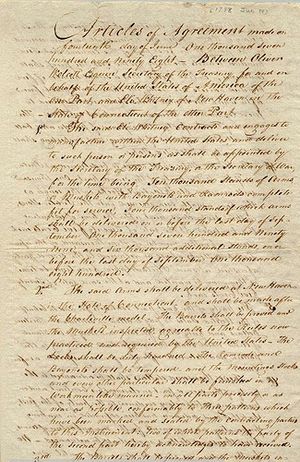 Articles of Agreement made on
fourteenth day of June One thousand seven
hundred and ninety Eight – Between Oliver
Wolcott Esquire Secretary of the Treasury for and on
behalf of the United States of America of the
one Part, and Eli Whitney of New Haven in the
State of Connecticut of the other Part
The said Eli Whitney Contracts and engages to
manufacture within the United States and deliver
to such person or persons as shall be appointed by
the Secretary of the Treasury, or the Secretary of War
for the time being Ten thousand Stands of Arms
or Muskets with Bayonets and Ramrods complete
fit for service Four thousand Stands of which Arms
on or before the last day of Sep
One thousand seven hundred and Ninety
nine, and six thousand additional Stands, on or
before the last day of September One thousand
eight hundred.
The said Arms shall be delivered at New Haven
the State of Connecticut, and shall be made after
the Charleville model – The Barrels shall be proved and
the Muskets inspected agreeable to the Rules now
practiced and required by the United States – The
Locks shall be The Ramrods and
Bayonets shall be tempered and the Mountings Locks
and every other particular shall be finished in a
Workmanlike manner, in all parts precisely or as
near as possible conformably to three patterns which
have been marked and sealed by the contracting parties
of this Instrument two of which patterns the party of
the second part hereby acknowledges to have received
The Barrels shall the Muskets in